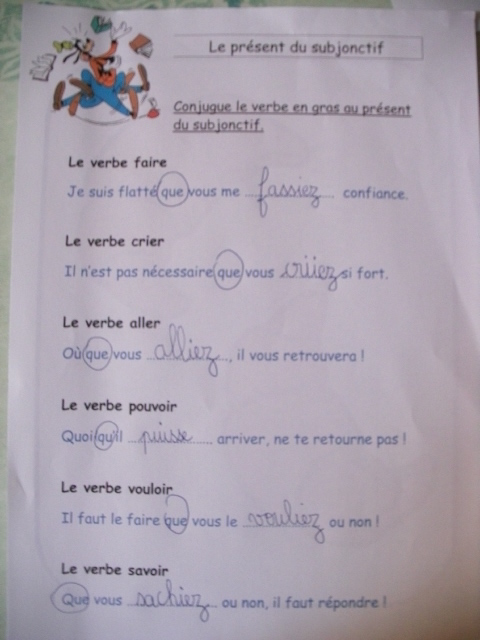 Le présent du subjonctif
Conjugue le verbe en gras au présent
du subjonctif.
Le verbe faire
Je suis flatté que vous me ...fassiez... confiance.
Le verbe crier
Il n'est pas nécessaire que vous criiez si fort.
Le verbe aller
Où que vous ...alliez..., il vous retrouvera !
Le verbe pouvoir
Quoi qu'il ...puisse... arriver, ne te retourne pas !
Le verbe vouloir
Il faut le faire que vous le ...vouliez ou non !
Le verbe savoir
Que vous ...sachiez... ou non, il faut répondre !